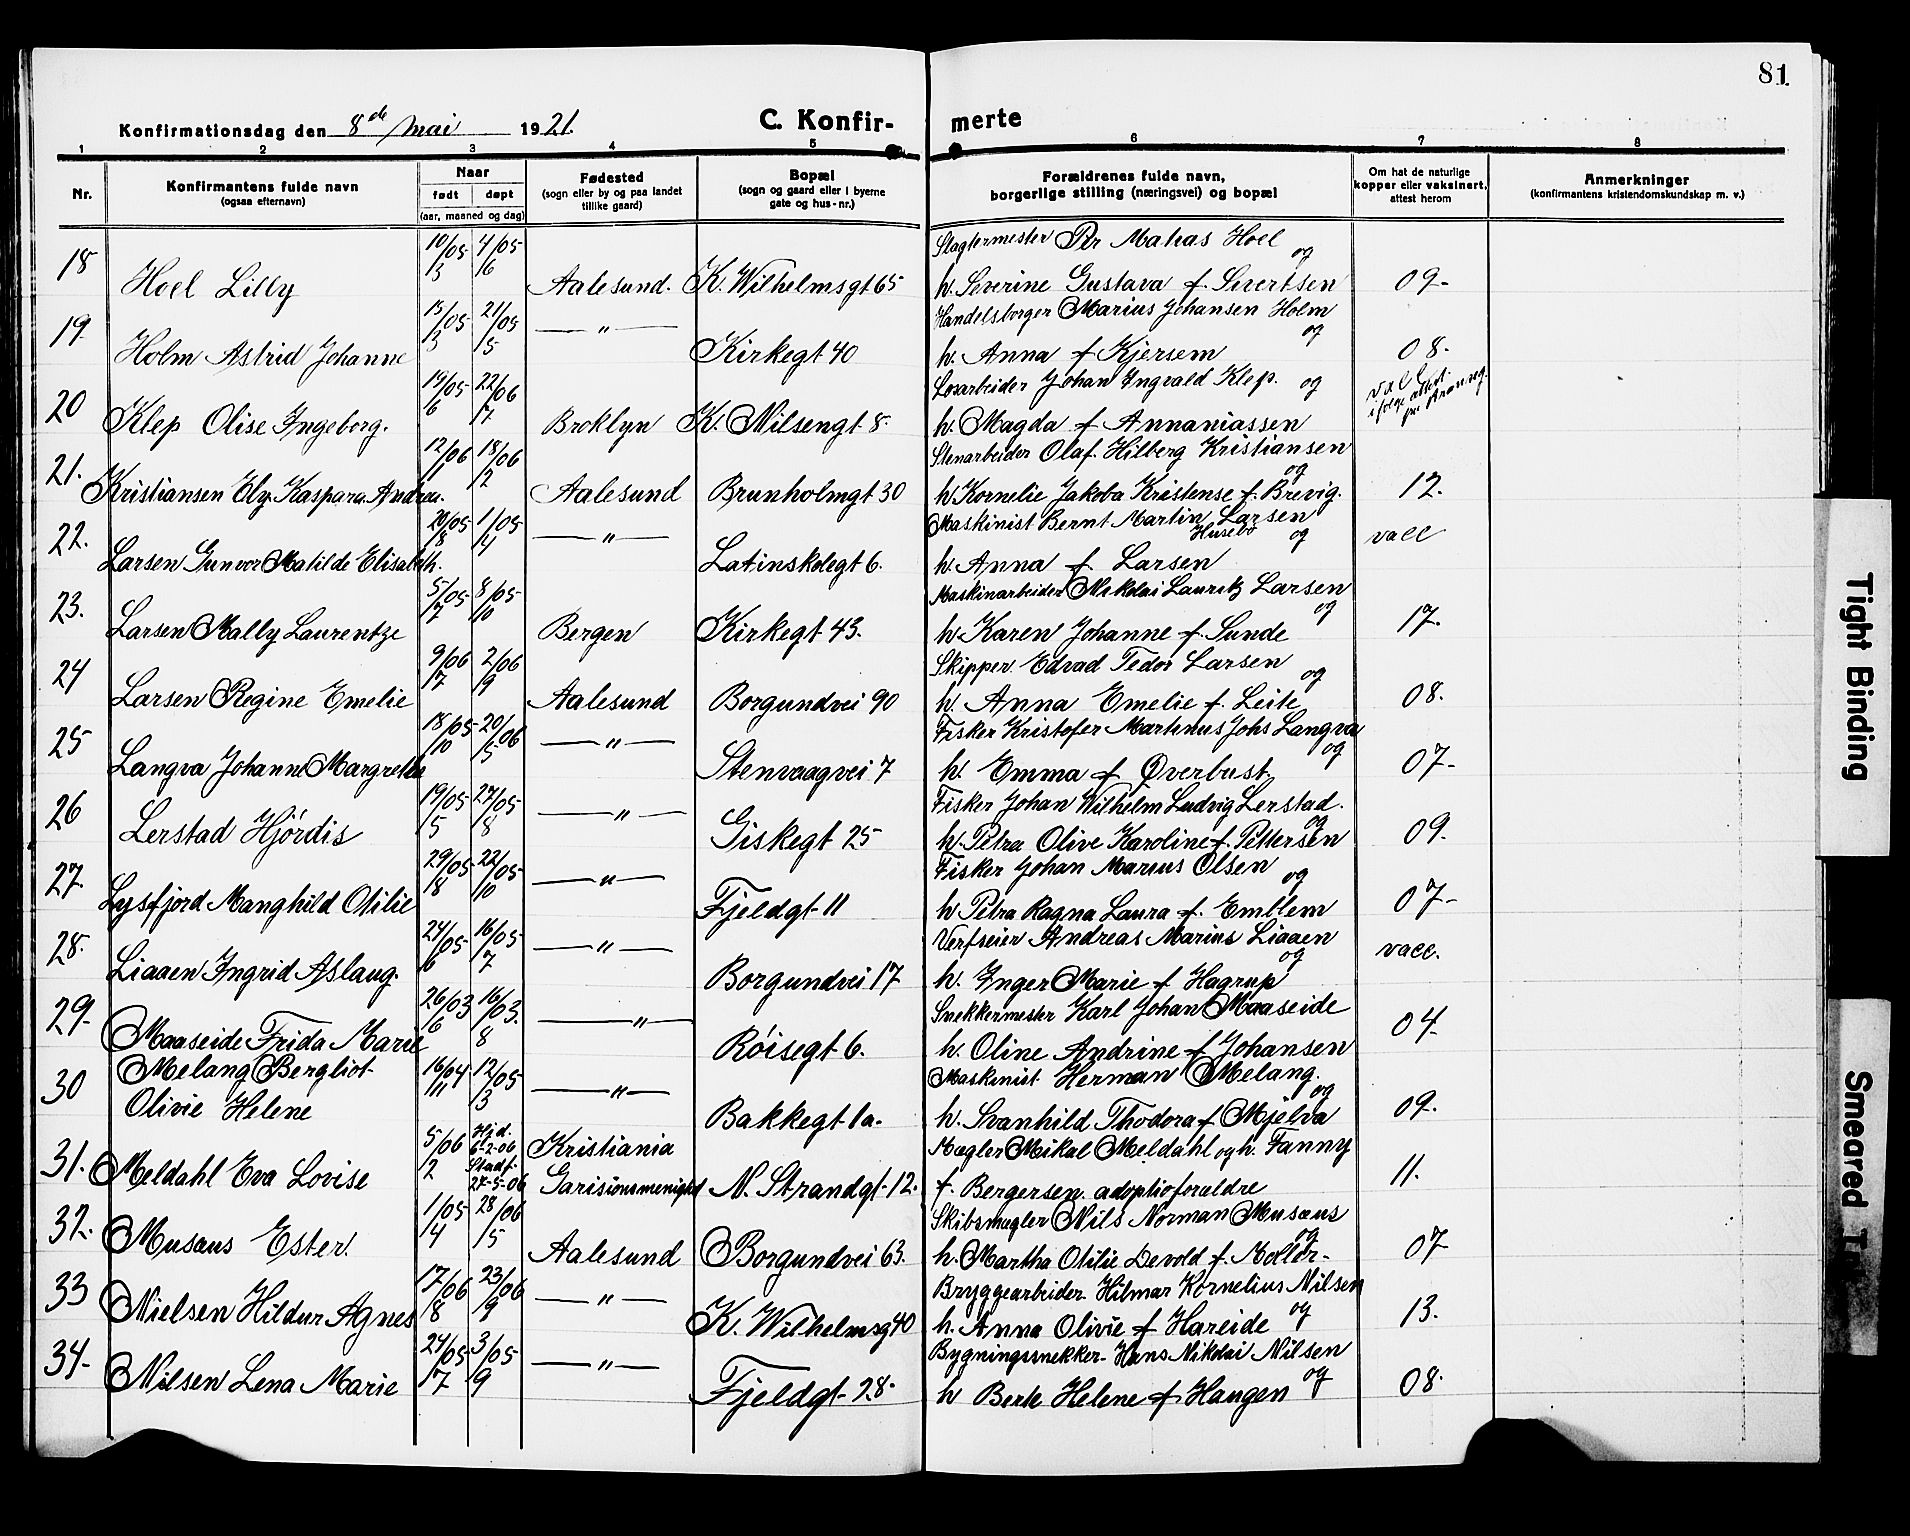 81
Konfirmationsdag den 8de mai 1921.
C. Konfirmerte
1 2 3 4 5 6 7 8
Nr.
Konfirmantens fulde navn
(ogsaa efternavn)
Naar
født døpt
(aar, maaned og dag)
Fødested
(sogn eller by og paa landet
tillike gaard)
Bopæl
(sogn og gaard eller i byerne
gate og hus-nr.)
Forældrenes fulde navn,
borgerlige stilling (næringsvei) og bopæl
Om hat de naturlige
kopper eller vaksinert,
attest herom
Anmerkninger
(konfirmantens kristendomskundskap m. v.)
18 Hoel Lilly 10/3 05 4/6 05 Aalesund. K. Wilhelmsgt 65 Slagtermester Per Matias Hoel og
h. Severine Gustava f. Sivertsen 09-
19. Holm Astrid Johanne 15/3 05 21/5 05 — " — Kirkegt 40 Handelsborger Marius Johansen Holm og
h. Anna f Kjersem 08.
20 Klep Olise Ingeborg. 19/6 05 22/7 06 Broklyn K. Nilsengt 8. Losarbeider Johan Ingvald Klep. og
h. Magda f Annaniassen
21. Kristiansen Ely Kaspara Andrea. 12/1 06 18/2 06 Aalesund Brunholmgt 30 Stenarbeider Olaf Hilberg Kristiansen og
h Kornelie Jakoba Kristense f. Brevig. 12.
22. Larsen Gunvor Matilde Elisabeth. 20/8 05 1/4 05 — " — Latinskolegt 6. Maskinist Bernt Martin Larsen Husebø og
h. Anna f. Larsen vacc
23. Larsen Mally Laurentze 5/7 05 8/10 05 Bergen Kirkegt 43. Maskinarbeider Nikolai Lauritz Larsen og
h Karen Johanne f. Sunde 17.
24 Larsen Regine Emelie 9/7 06 2/9 06 Aalesund Borgundvei 90 Skipper Edvad Tedor Larsen og
h. Anna Emelie f. Leite 08.
25 Langva Johanne Margrethe 18/10 05 20/5 06 — " — Stenvaagvei 7 Fisker Kristofer Martinus Johs Langva og
h. Emma f Øverbust. 07-
26 Lerstad Hjördis 19/5 05 27/8 05 — " — Giskegt 25 Fisker Johan Wilhelm Ludvig Lerstad. og
h. Petra Olive Karoline f. Pettersen 09.
27. Lysfjord Manghild Otilie 29/8 05 22/10 05 — " — Fjeldgt 11 Fisker Johan Marius Olsen og
h Petra Ragna Laura f. Emblem 07-
28. Liaaen Ingrid Aslaug. 24/6 05 16/7 05 — " — Borgundvei 17 Verfseier Andreas Marius Liaaen og
h. Inger Marie f Hagrup vacc.
29- Maaseide Frida Marie 26/6 03 16/8 03. — " — Röisegt 6. Snekkermester Karl Johan Maaseide
h. Oline Andrine f Johansen 04-
30 Melang Bergliot
Olivie Helene 16/11 04 12/3 05 — " — Bakkegt 1a. Maskinist Herman Melang. og
h. Svanhild Thodora f Mjelva 09.
31. Meldahl Eva Lovise 5/2 06 Hjd. 6-2-06 Stadf. 27-5-06 Kristiania
Garisionsmenighed N. Strandgt 12. Mægler Mikal Meldahl og h. Fanny
f. Bergersen. adoptioforældre 11.
32. Musæus Ester. 1/4 05 28/5 06 Aalesund Borgundvei 63. Skibsmægler Nils Norman Musæus og
h. Martha Otilie Devold f. Møller- 07
33 Nielsen Hildur Agnes 17/8 06 23/9 06 — " — K. Wilhelmsg 40 Bryggearbeider Hilmar Kornelius Nilsen og
h. Anna Olivie f Hareide 13.
34- Nilsen Lena Marie 24/7 05 3/9 05 — " — Fjeldgt 28- Bygningssnekker Hans Nikolai Nilsen og
h Berte Helene f Haugen 08.
Tight Binding
Smeared